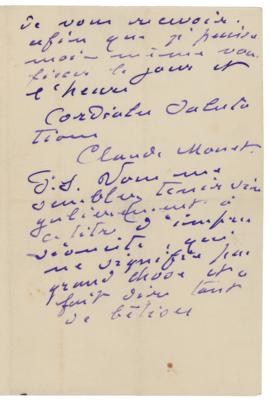 de vous recevoir.
afin que je puisse
moi-même vous
fixer le jour et
l'heure
Cordiales saluta
tions
Claude Monet.
P.S. Vous me
semblez tenir sin
gulièrement à
ce titre d'impre
sioniste qui
ne signifie pas
grand chose et a
fait dire tant
de bêtises